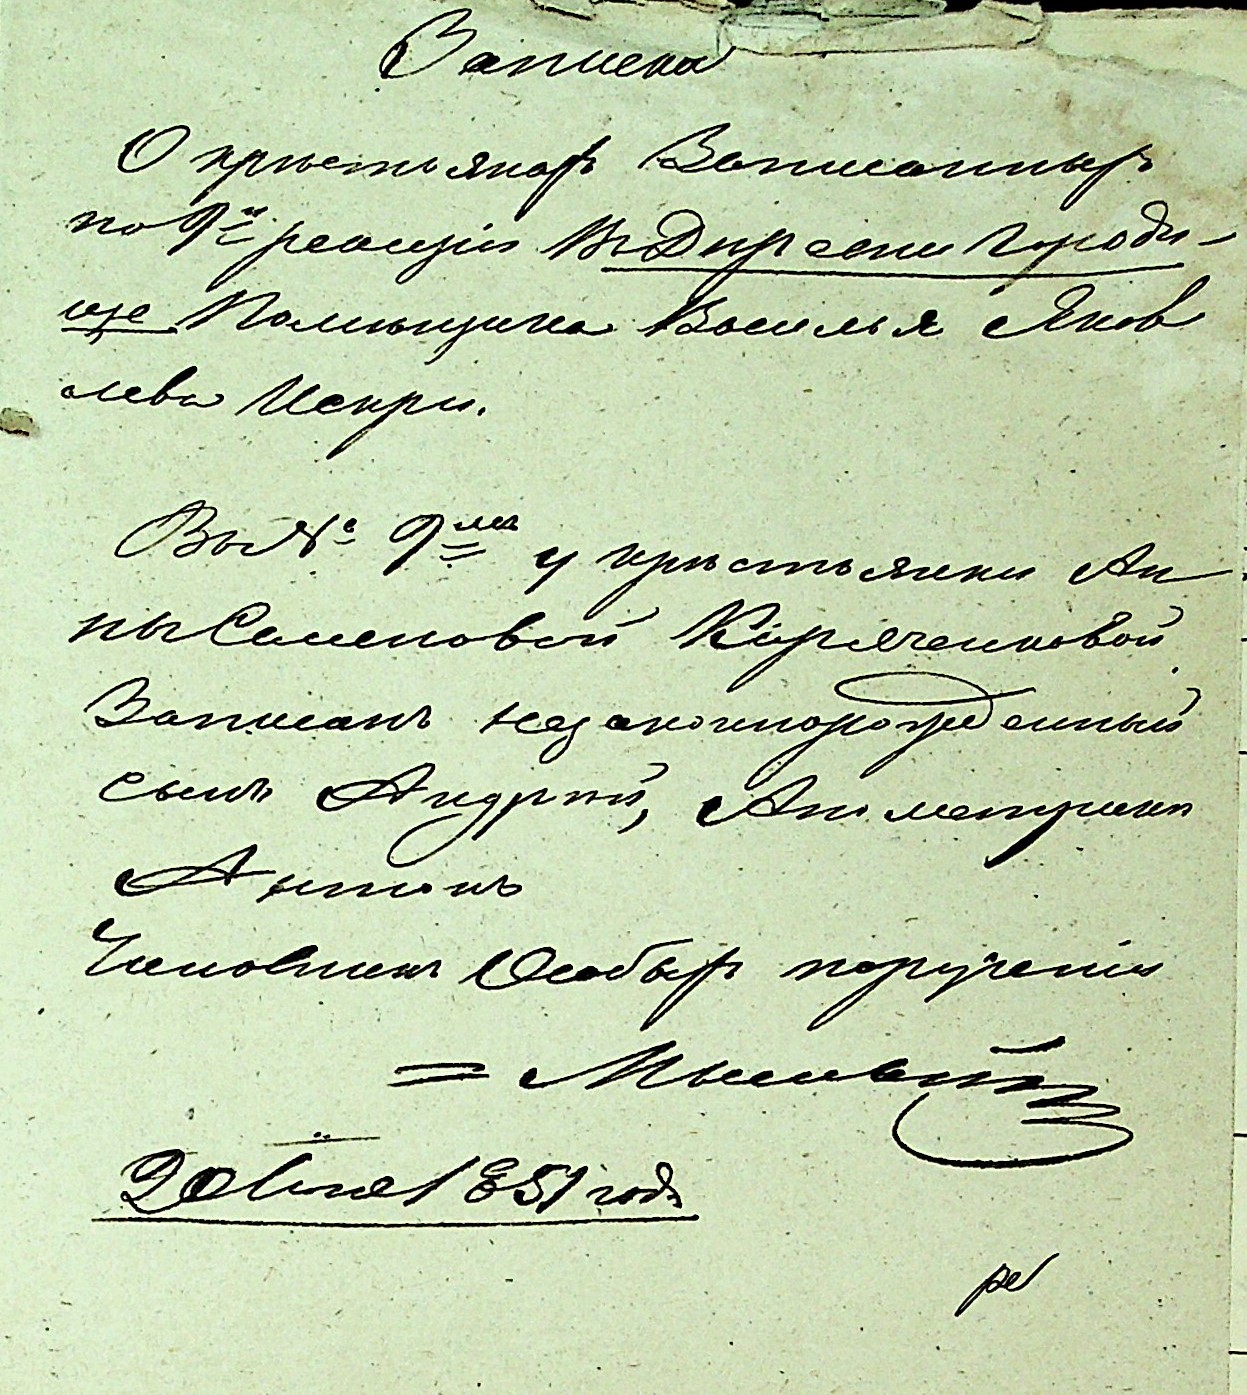 Записка
О крестьянахъ Записанныхъ
по 9й ревизіи Въ Дир Городи-
ще Помѣщика Василья Яков
лева Искри.
Въ № 9мъ у крестьянки Ан
ны Семеновой Киряченковой
Записанъ незаконнорожденный
сынъ Андрей, А по метрики
Антонъ
Чиновникъ Особыхъ порученій
20 Іюля 1851 года